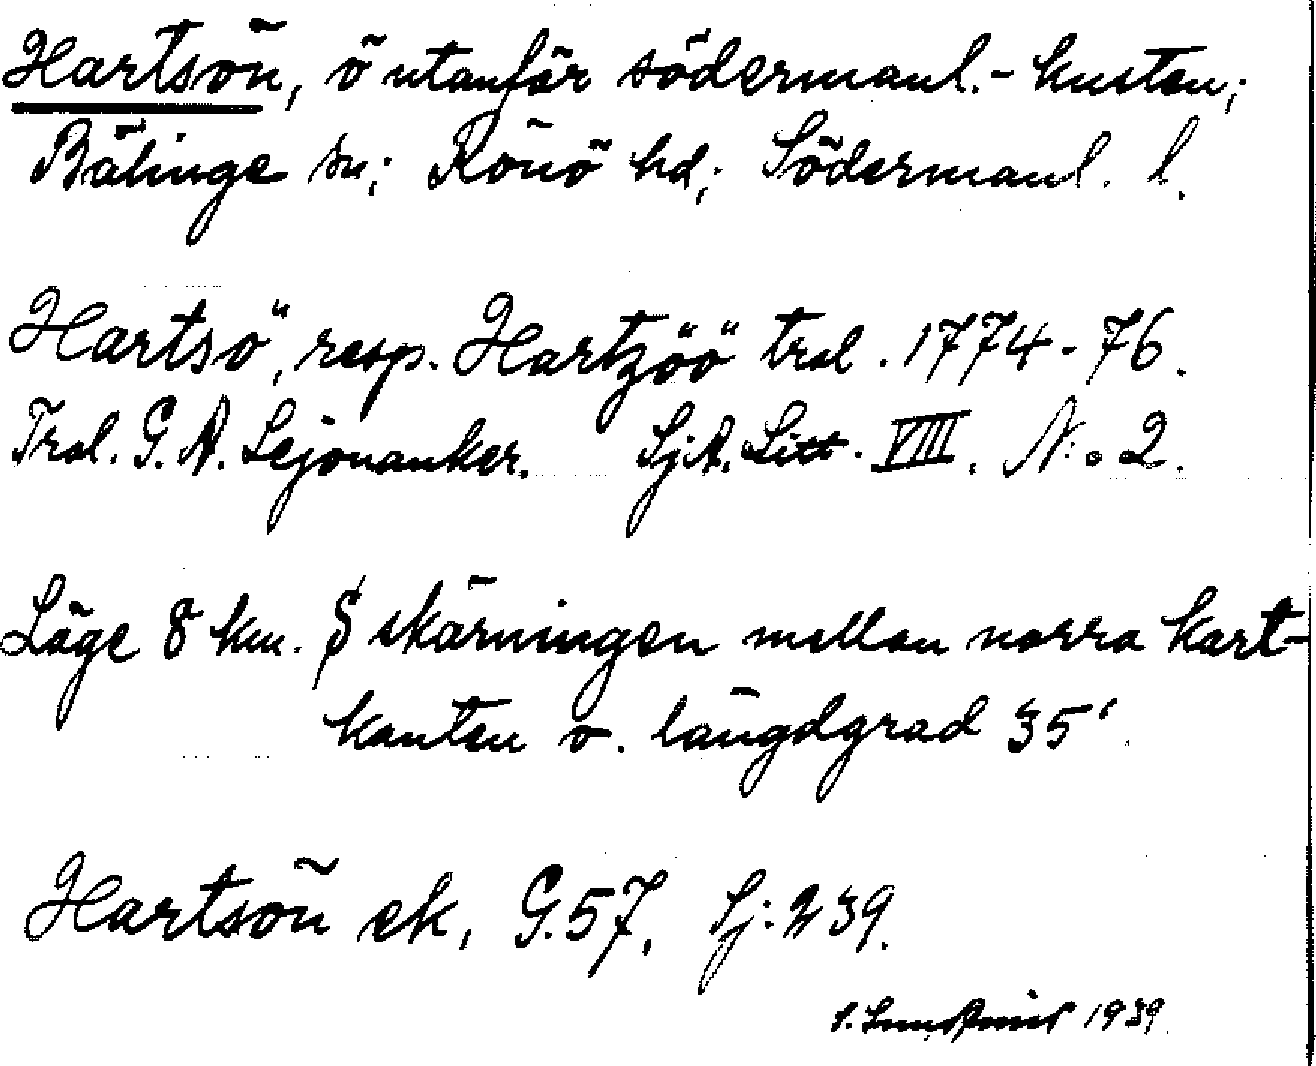 Hartsön, ö utanför södermanl.-kusten;
Bälinge sn; Rönö hd; Södermanl. l.
Hartsö, resp. Hartzöö trol. 1774-76.
Trol. G. A. Lejonanker. SjA. Litt. VIII. N:o 2.
Läge 8 km. S skärningen mellan norra kart-
kanten o. längdgrad 35'.
Hartsön ek, G.57, Sj:239.
1939